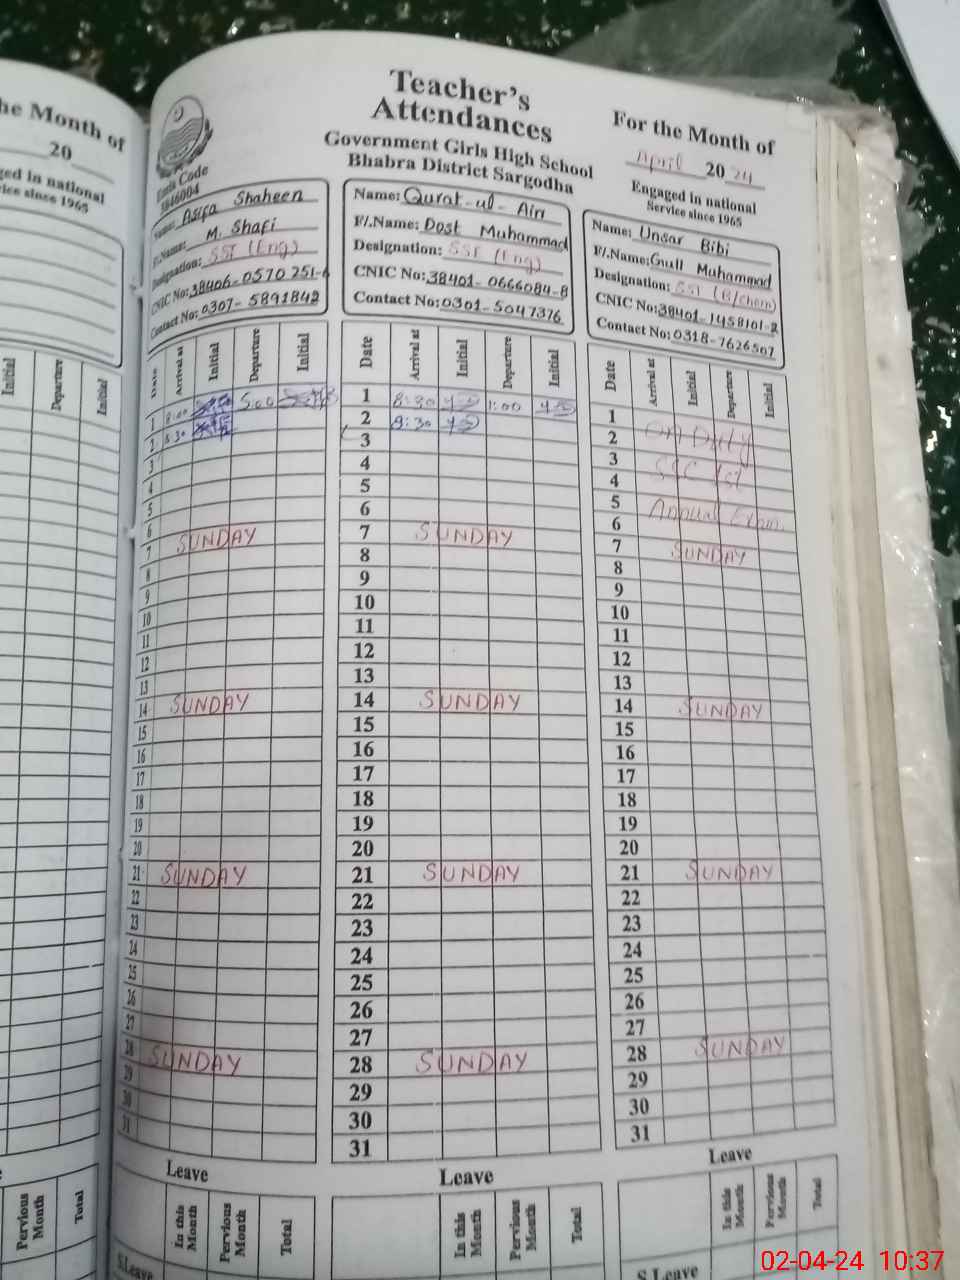 he Month of
20
ged in national
vice since 1965
Teacher's
Attendances
Government Girls High School
Bhabra District Sargodha
For the Month of
April 2024
Engaged in national
Service since 1965
Code
Name: Asifa Shaheen
F/.Name: M. Shafi
Designation: SST (Eng)
CNIC No: 38406-0570251-6
Contact No: 0307-5891842
Name: Qurat-ul-Ain
F/.Name: Dost Muhammad
Designation: SSE (Eng)
CNIC No: 38401-0666084-8
Contact No: 0301-5047376
Name: Unsar Bibi
F/.Name: Gull Muhammad
Designation: SST (B/Chem)
CNIC No: 38401-1458101-2
Contact No: 0318-7626507
Initial Departure Initial
Date Arrival at Initial Departure Initial
Date Arrival at Initial Departure Initial
Date Arrival at Initial Departure Initial
1 8:00 5:00 1 8:30 1:00 1
2 8:30 2 8:30 2 On Duty
3 3 3
4 4 4 SSC 1st
5 5 5
6 6 6 Annual Exam
7 SUNDAY 7 SUNDAY 7 SUNDAY
8 8 8
9 9 9
10 10 10
11 11 11
12 12 12
13 13 13
14 SUNDAY 14 SUNDAY 14 SUNDAY
15 15 15
16 16 16
17 17 17
18 18 18
19 19 19
20 20 20
21 SUNDAY 21 SUNDAY 21 SUNDAY
22 22 22
23 23 23
24 24 24
25 25 25
26 26 26
27 27 27
28 SUNDAY 28 SUNDAY 28 SUNDAY
29 29 29
30 30 30
31 31 31
Leave Leave Leave
Pervious Month Total
In this Month Pervious Month Total
In this Month Pervious Month Total
In this Month Pervious Month Total
S.Leave
S.Leave
02-04-24 10:37